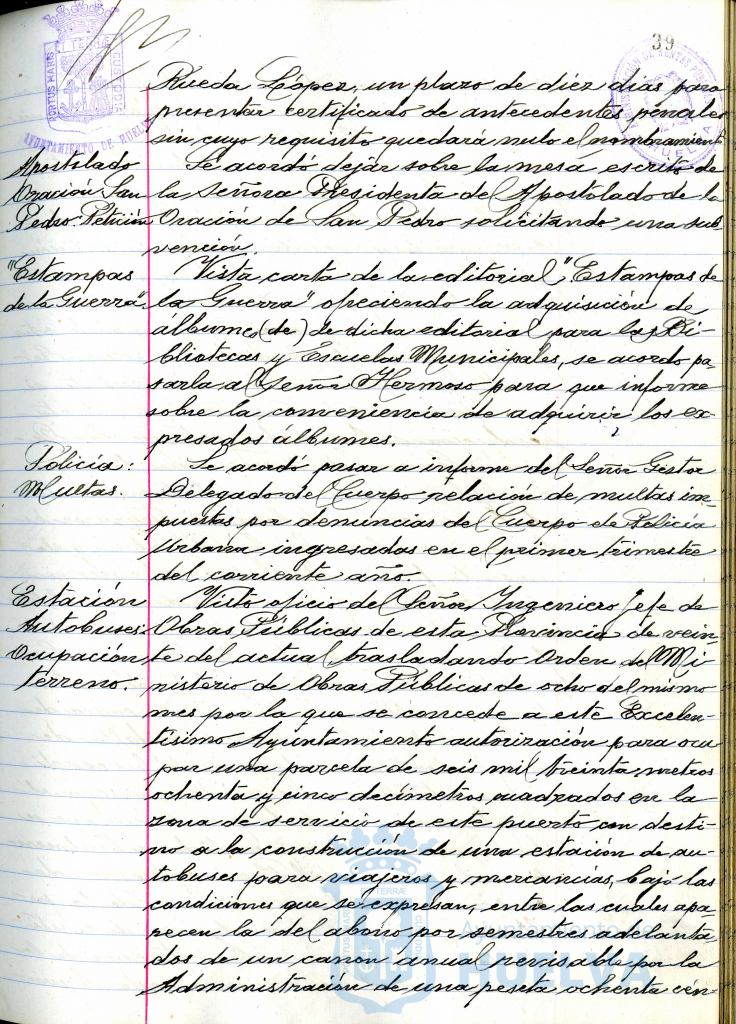 39
PORTUS MARIS ET TERRAE CUSTODIA
AYUNTAMIENTO DE HUELVA
Rueda López, un plazo de diez dias para
presentar certificado de antecedentes penales
sin cuyo requisito quedará nulo el nombramiento
Apostolado
Oración San
Pedro-Petición
Se acordó dejar sobre la mesa escrito de
la Señora Presidenta del Apostolado de la
Oración de San Pedro solicitando una sub
vención.
"Estampas
de la Guerra"
Vista carta de la editorial "Estampas de
la Guerra" ofreciendo la adquisición de
álbumes (de) de dicha editorial para las Bi-
bliotecas y Escuelas Municipales, se acordo pa-
sarla al Señor Hermoso para que informe
sobre la conveniencia de adquirir los ex-
presados álbumes.
Policia:
Multas.
Se acordó pasar a informe del Señor Gestor
Delegado del Cuerpo relación de multas im-
puestas por denuncias del Cuerpo de Policia
Urbana ingresadas en el primer trimestre
del corriente año.
Estación
Autobuses:
Ocupación
terreno.
Visto oficio del Señor Ingeniero Jefe de
Obras Públicas de esta Provincia de vein-
te del actual, trasladando Orden del Mi-
nisterio de Obras Públicas de ocho del mismo
mes por la que se concede a este Excelen-
tisimo Ayuntamiento autorización para ocu
par una parcela de seis mil treinta metros
ochenta y cinco decimetros cuadrados en la
zona de servicio de este puerto con desti-
no a la construcción de una estación de au-
tobuses para viajeros y mercancias, bajo las
condiciones que se expresan, entre las cuales apa-
recen la del abono por semestres adelanta-
dos de un canon anual revisable por la
Administración de una peseta ochenta cén-
Ayuntamiento de
HUELVA